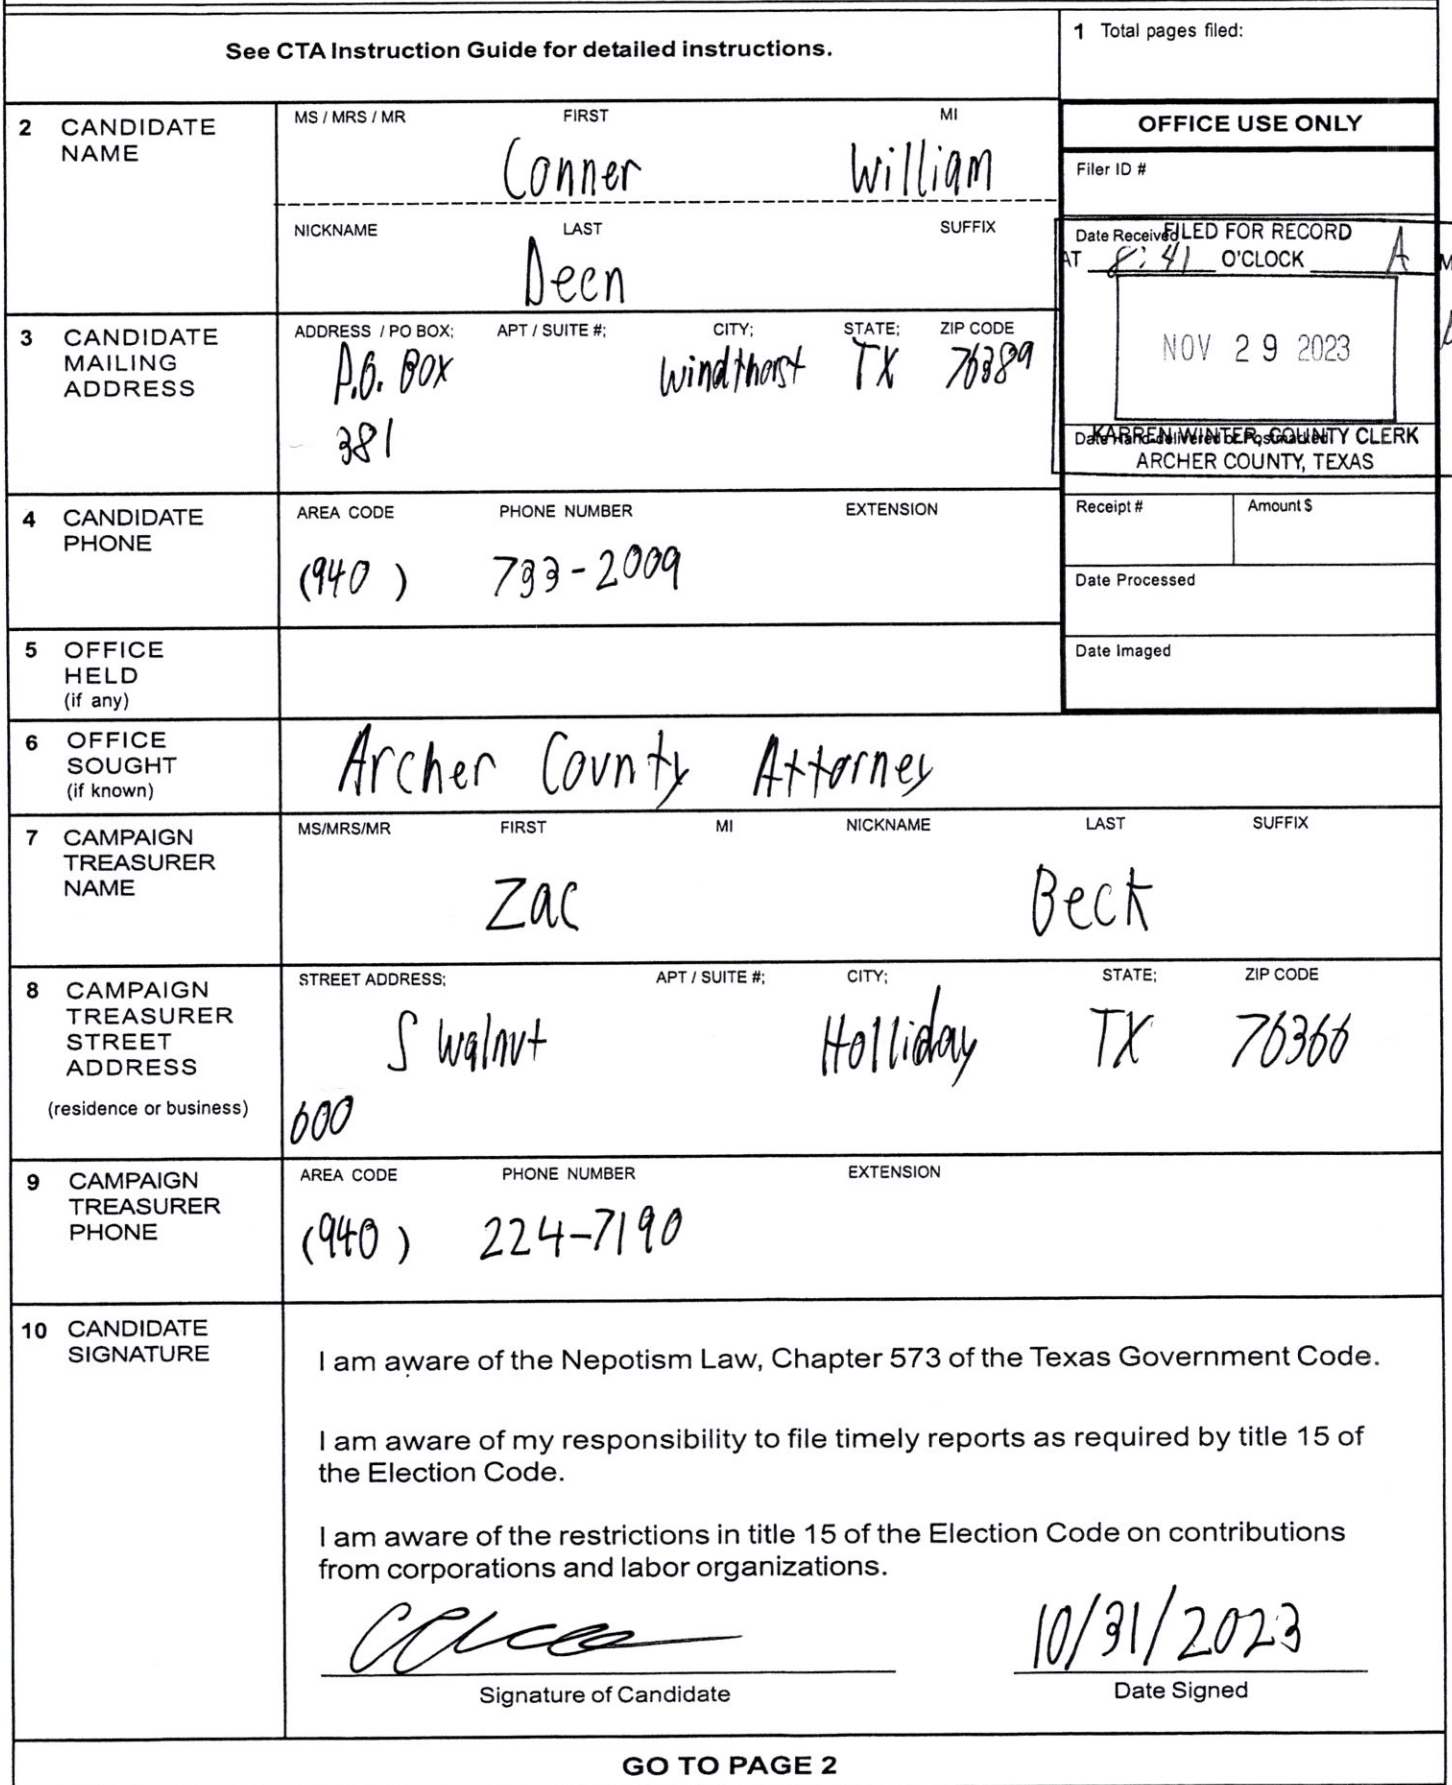 See CTA Instruction Guide for detailed instructions.
1 Total pages filed:
2 CANDIDATE NAME
MS / MRS / MR FIRST MI
Conner William
NICKNAME LAST SUFFIX
Deen
OFFICE USE ONLY
Filer ID #
Date Received
FILED FOR RECORD
AT 8:41 O'CLOCK A M
NOV 29 2023
Date Hand-delivered or Postmarked
KARREN WINTER, COUNTY CLERK
ARCHER COUNTY, TEXAS
Receipt # Amount $
Date Processed
Date Imaged
3 CANDIDATE MAILING ADDRESS
ADDRESS / PO BOX; APT / SUITE #; CITY; STATE; ZIP CODE
P.O. BOX Windthorst TX 76389
381
4 CANDIDATE PHONE
AREA CODE PHONE NUMBER EXTENSION
(940) 733-2009
5 OFFICE HELD
(if any)
6 OFFICE SOUGHT
(if known)
Archer County Attorney
7 CAMPAIGN TREASURER NAME
MS/MRS/MR FIRST MI NICKNAME LAST SUFFIX
Zac Beck
8 CAMPAIGN TREASURER STREET ADDRESS
(residence or business)
STREET ADDRESS; APT / SUITE #; CITY; STATE; ZIP CODE
S Walnut Holliday TX 76366
600
9 CAMPAIGN TREASURER PHONE
AREA CODE PHONE NUMBER EXTENSION
(940) 224-7190
10 CANDIDATE SIGNATURE
I am aware of the Nepotism Law, Chapter 573 of the Texas Government Code.
I am aware of my responsibility to file timely reports as required by title 15 of
the Election Code.
I am aware of the restrictions in title 15 of the Election Code on contributions
from corporations and labor organizations.
10/31/2023
Signature of Candidate Date Signed
GO TO PAGE 2